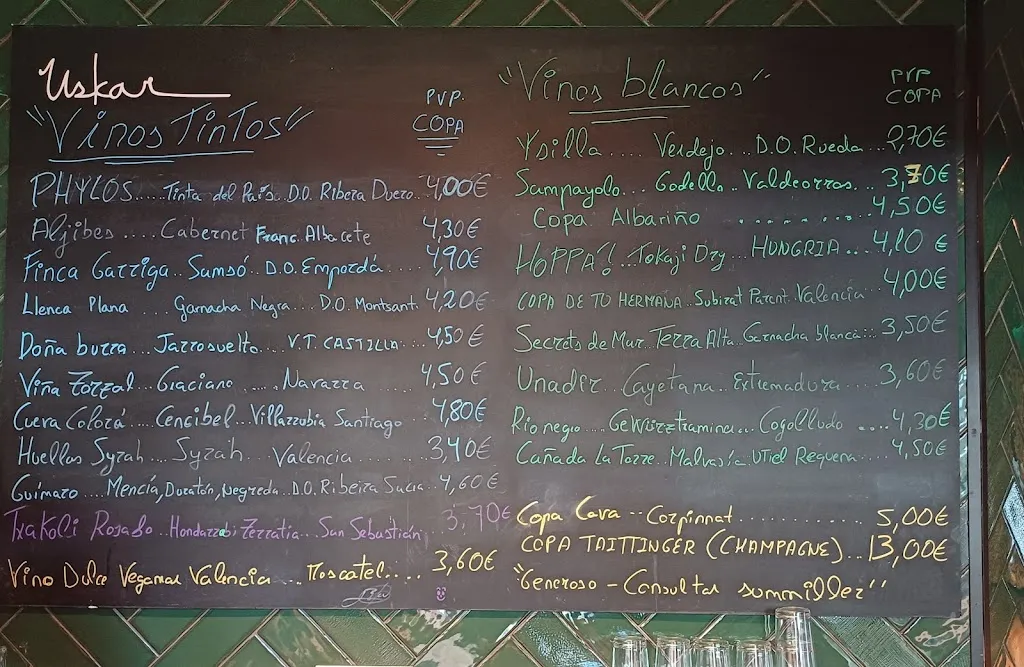 Uskar
"Vinos Tintos"
PVP.
COPA
PHYLOS..... Tinta del País. D.O. Ribera Duero. 4,00€
Aljibes .... Cabernet Franc. Albacete 4,30€
Finca Garriga.. Samsó.. D.O. Empordá .... 4,90€
Llenca Plana Garnacha Negra... D.O. Montsant. 4,20€
Doña burra... Jarrosuelto.... V.T. CASTILLA.. 4,50€
Viña Zorzal... Graciano ..... Navarra .... 4,50€
Cueva Colorá.. Cencibel.. Villarrubia Santiago 4,80€
Huellas Syrah... Syrah. Valencia 3,40€
Guimaro .... Mencía, Duratón, Negreda.. D.O. Ribeira Sacra. 4,60€
Txakoli Rosado.. Hondarrabi Zerratia... San Sebastián 3,70€
Vino Dulce Vegamar Valencia ... Moscatel.... 3,60€
"Vinos blancos"
PVP
COPA
Ysilla.... Verdejo... D.O. Rueda.. 2,70€
Sampayolo... Godello.. Valdeorras.. 3,70€
Copa Albariño ......... 4,50€
HOPPÁ!.. Tokaji Dry.. HUNGRIA... 4,10 €
COPA DE TU HERMANA.. Subirat Parent. Valencia 4,00€
Secrets de Mar. Terra Alta. Garnacha blanca... 3,50€
Unadir.. Cayetana.. Extremadura ... 3,60€
Rio negro... Gewürztramina... Cogolludo .... 4,30€
Cañada La Torre. Malvasía. Utiel Requena.... 4,50€
Copa Cava -- Corpinnat........... 5,00€
COPA TAITTINGER (CHAMPAGNE)... 13,00€
"Generoso - Consultar summiller"